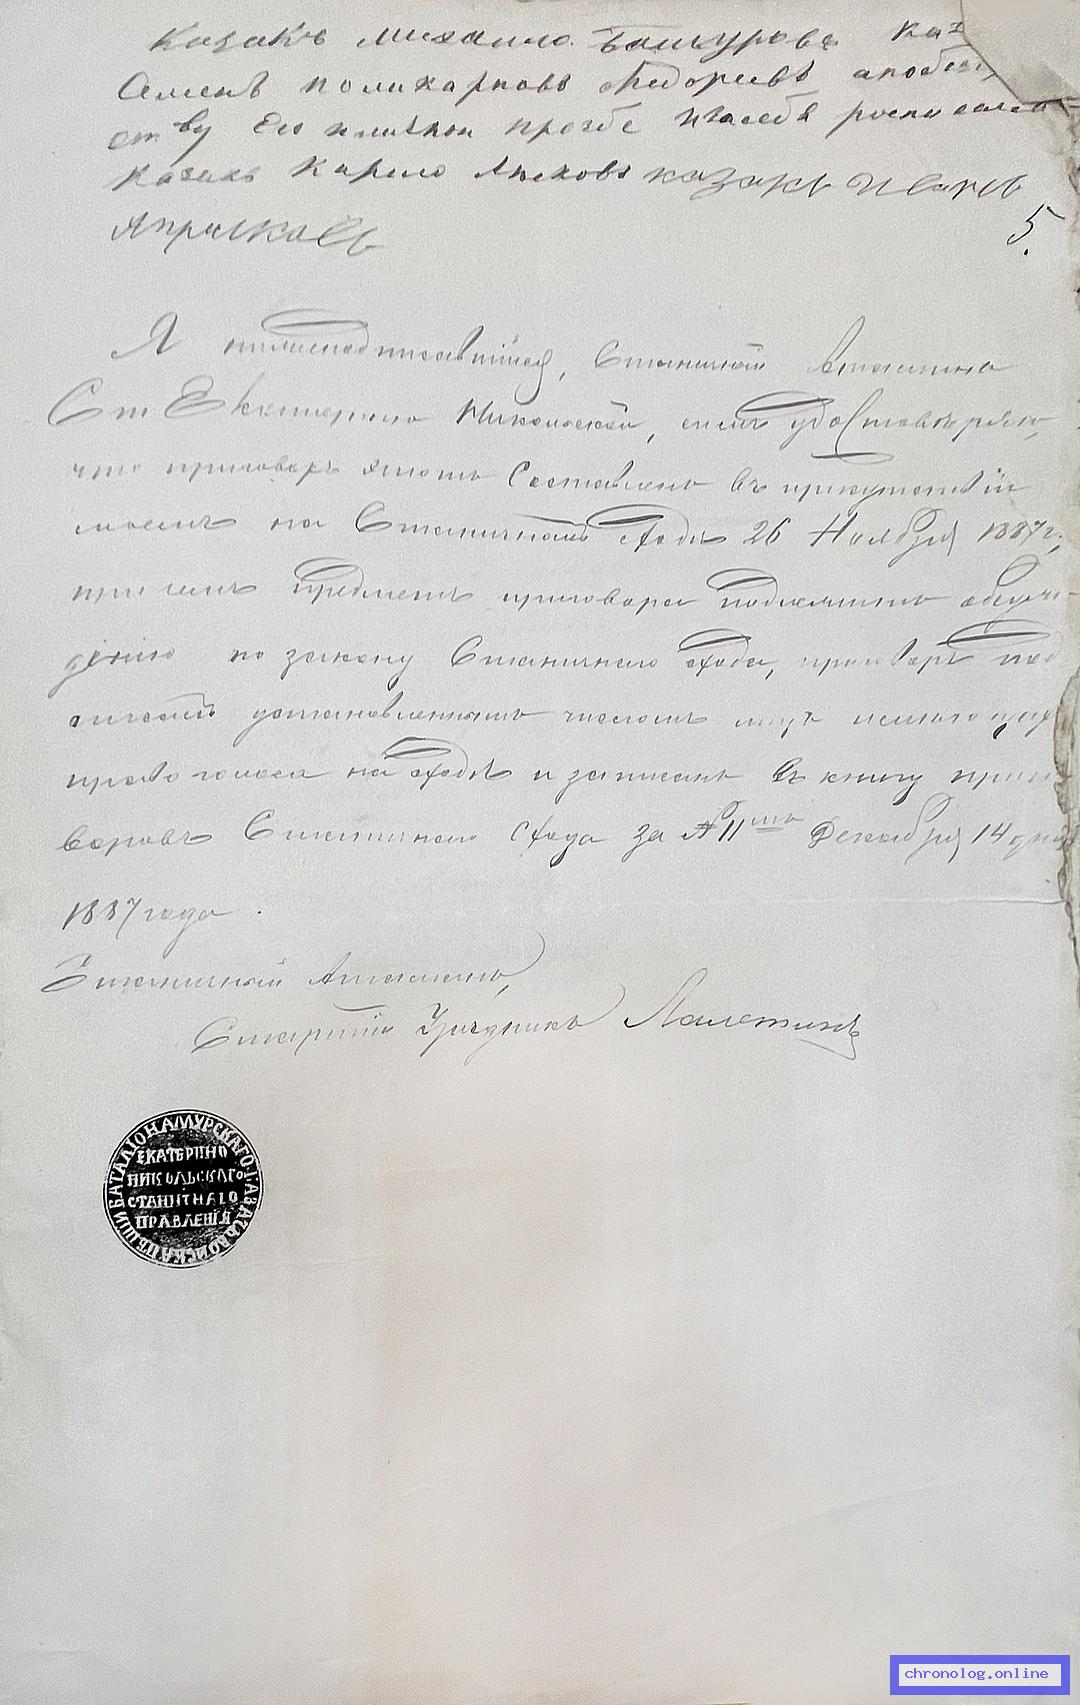 Казакъ Михаило Башуровъ каз
Семенъ поликарповъ Федореевъ апобез
ству Его иличной прозбе изасебя росписался
казакъ Карило казакъ Иванъ
5.
Я нижеподписавшійся, Станичный Атаманъ
Ст Екатерино Никольской, симъ удостоверяю,
что приговоръ этотъ Составленъ въ присутствіи
моемъ на Станичномъ сходе 26 Ноября 1887 г.,
при чемъ предметъ приговора подлежитъ обсуж-
денію по закону Станичнаго схода, приговоръ под
писанъ установленнымъ числомъ лицъ имеющихъ
право голоса на сходе и записанъ въ книгу приго
воровъ Станичнаго Схода за № 11мъ Декабря 14 дня
1887 года.
Станичный Атаманъ,
Старшій Урядникъ Лалетинъ
ПѢШІЙ БАТАЛІОНА АМУРСКАГО КАЗАЧ. ВОЙСКА
ЕКАТЕРИНО
НИКОЛЬСКАГО
СТАНИЧНАГО
ПРАВЛЕНІЯ
chronolog.online